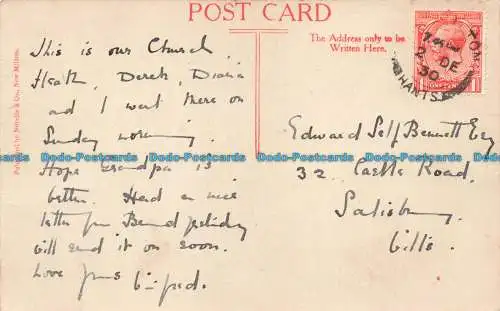 POST CARD
The Address only to be
Written Here.
This is our Church.
Heath, Derek, Diana
and I went there on
Sunday morning.
Hope Grandpa is
better. Had a nice
letter from
yesterday
will send it on soon.
Love from
Edward Self Bennett Esq
32 Castle Road,
Salisbury,
Wilts.
2 DE
30
HANTS
Dodo-Postcards Dodo-Postcards Dodo-Postcards Dodo-Postcards Dodo-Postcards